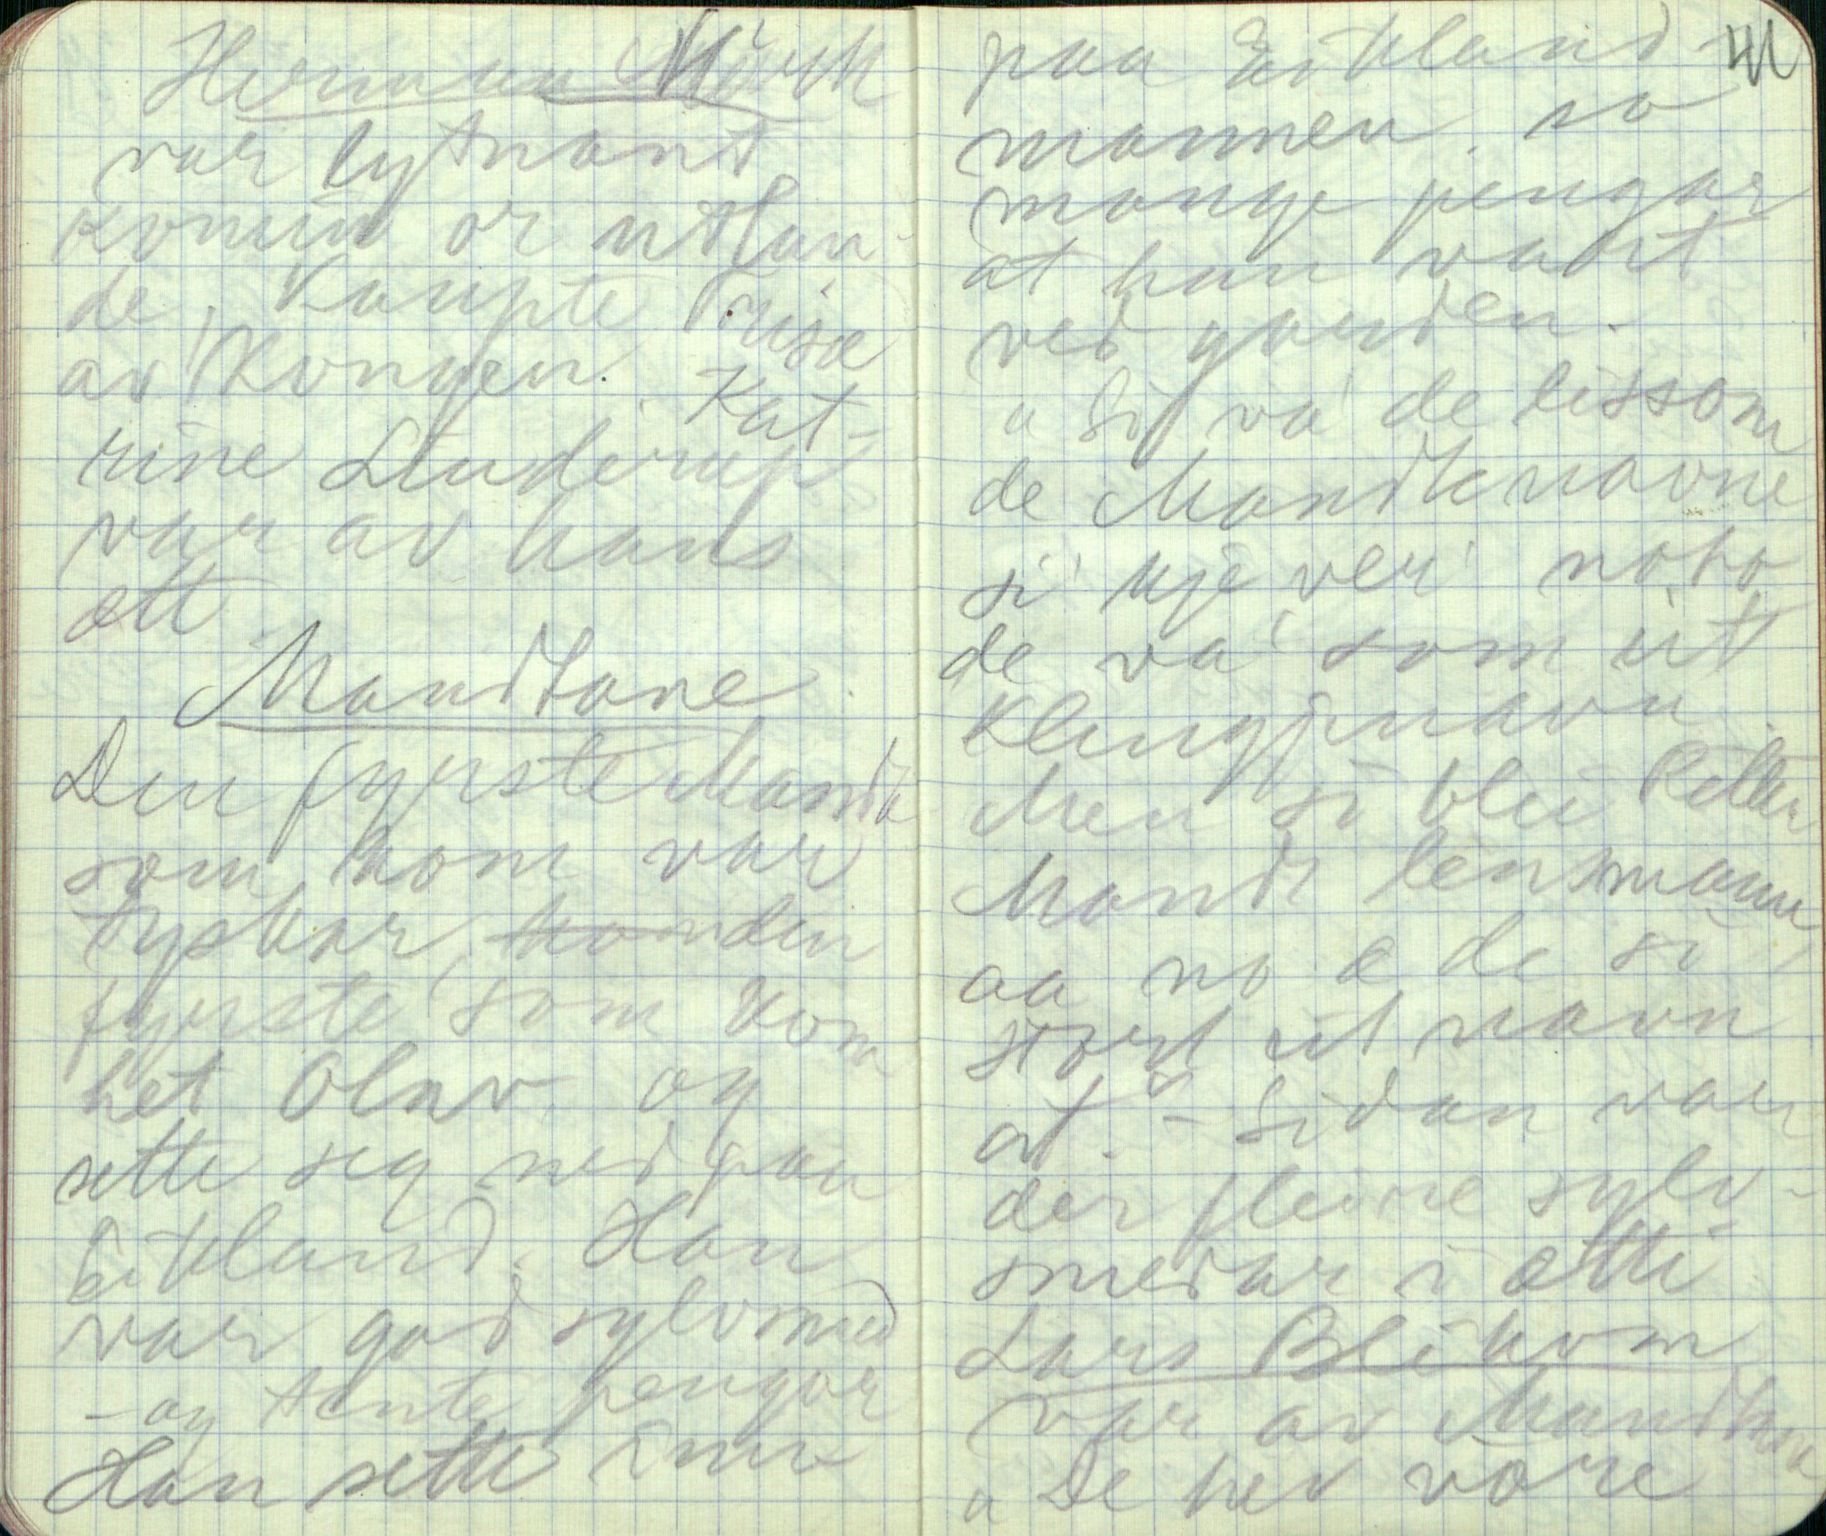 Herman Mörk
var lytnant
komin or utlan-
de, Kaupte Trisæ
av Kongen. Kat-
rine Linderup
var av hans
ætt
Mandtane
Den fyrste Mandt
som kom var
tyskar, kom den
fyrste som kom
het Olav og
sette seg ned paa
Eikland. Han
var god sylvsmed
- og tente pengar
Han sette inn
paa Eikland - 41
mannen, so
mange pengar
at han vart
ved garden.
a Si va' de lissom
de Mandtenavne
si' kje ver' noko
de va' som it
Klengjenavn.
Men si blei Petter
Mandt lensmann,
aa no æ de so
stort it navn
at. - Sidan var
der fleire sylv-
smedar i ætti
Lars Blikom
var av Mandt
a De hev vore